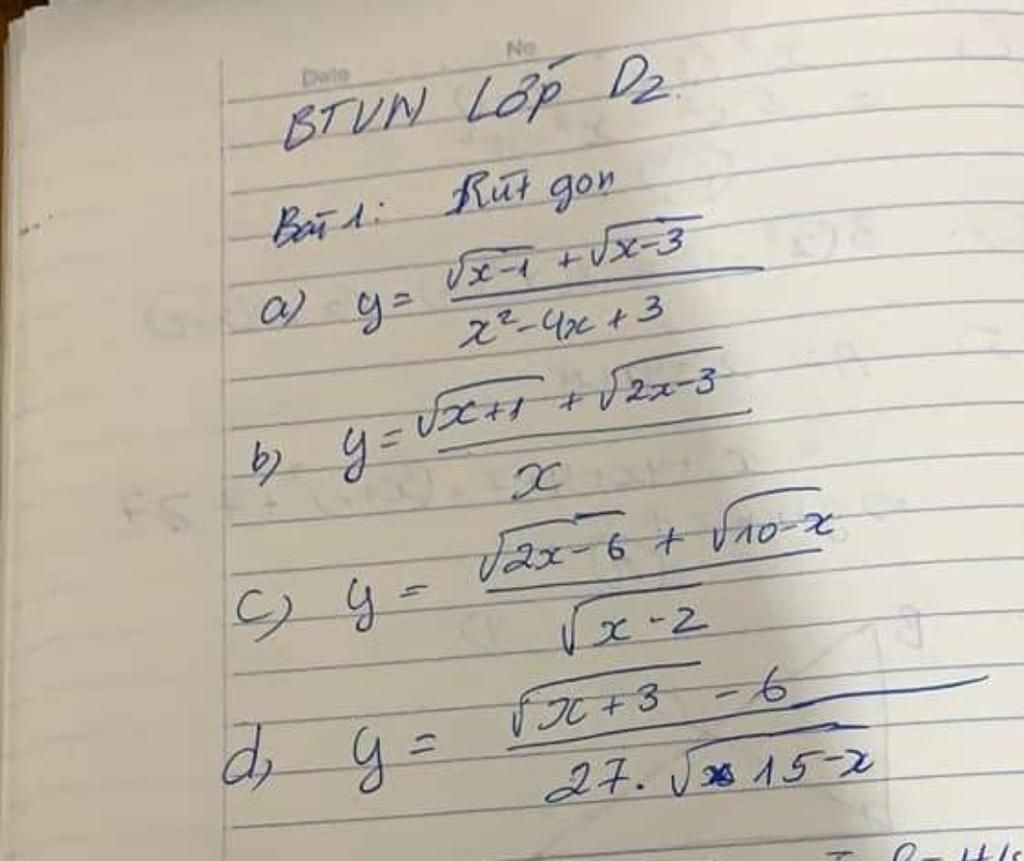 Date No
BTVN Lớp D2.
Bài 1: Rút gọn
a) y = (√(x-1) + √(x-3)) / (x² - 4x + 3)
b) y = (√(x+1) + √(2x-3)) / x
c) y = (√(2x-6) + √(10-x)) / √(x-2)
d) y = (√(x+3) - 6) / (27.√(15-x))